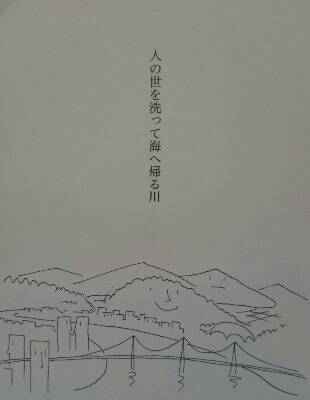 人の世を洗って海へ帰る川